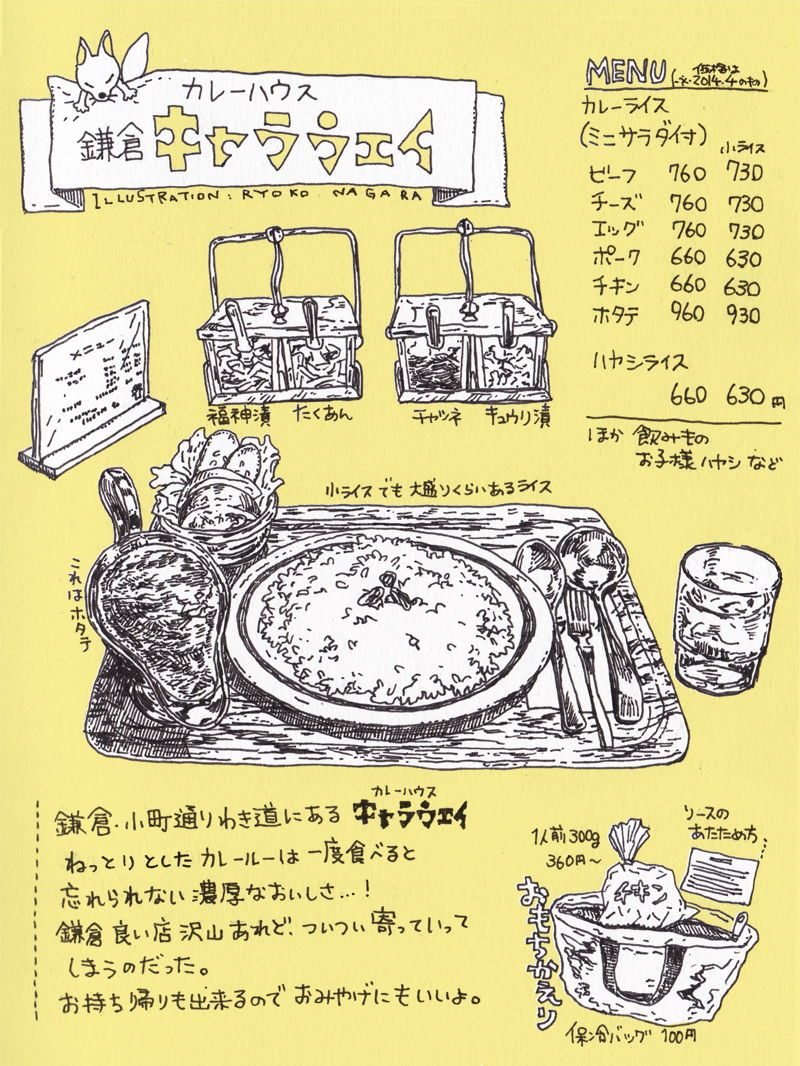 カレーハウス
鎌倉 キャラウェイ
ILLUSTRATION: RYOKO NAGARA
MENU (価格は
※2014.4のもの)
カレーライス
(ミニサラダ付) 小ライス
ビーフ 760 730
チーズ 760 730
エッグ 760 730
ポーク 660 630
チキン 660 630
ホタテ 960 930
ハヤシライス
660 630円
ほか 飲みもの
お子様ハヤシなど
メニュー
福神漬 たくあん
チャツネ キュウリ漬
小ライスでも大盛りくらいあるライス
これはホタテ
カレーハウス
鎌倉・小町通りわき道にある キャラウェイ
ねっとりとしたカレールーは一度食べると
忘れられない濃厚なおいしさ…!
鎌倉 良い店 沢山あれど、ついつい寄っていって
しまうのだった。
お持ち帰りも出来るのでおみやげにもいいよ。
ソースの
あたため方
1人前300g
360円〜
チキン
おもちかえり
保冷バッグ 100円